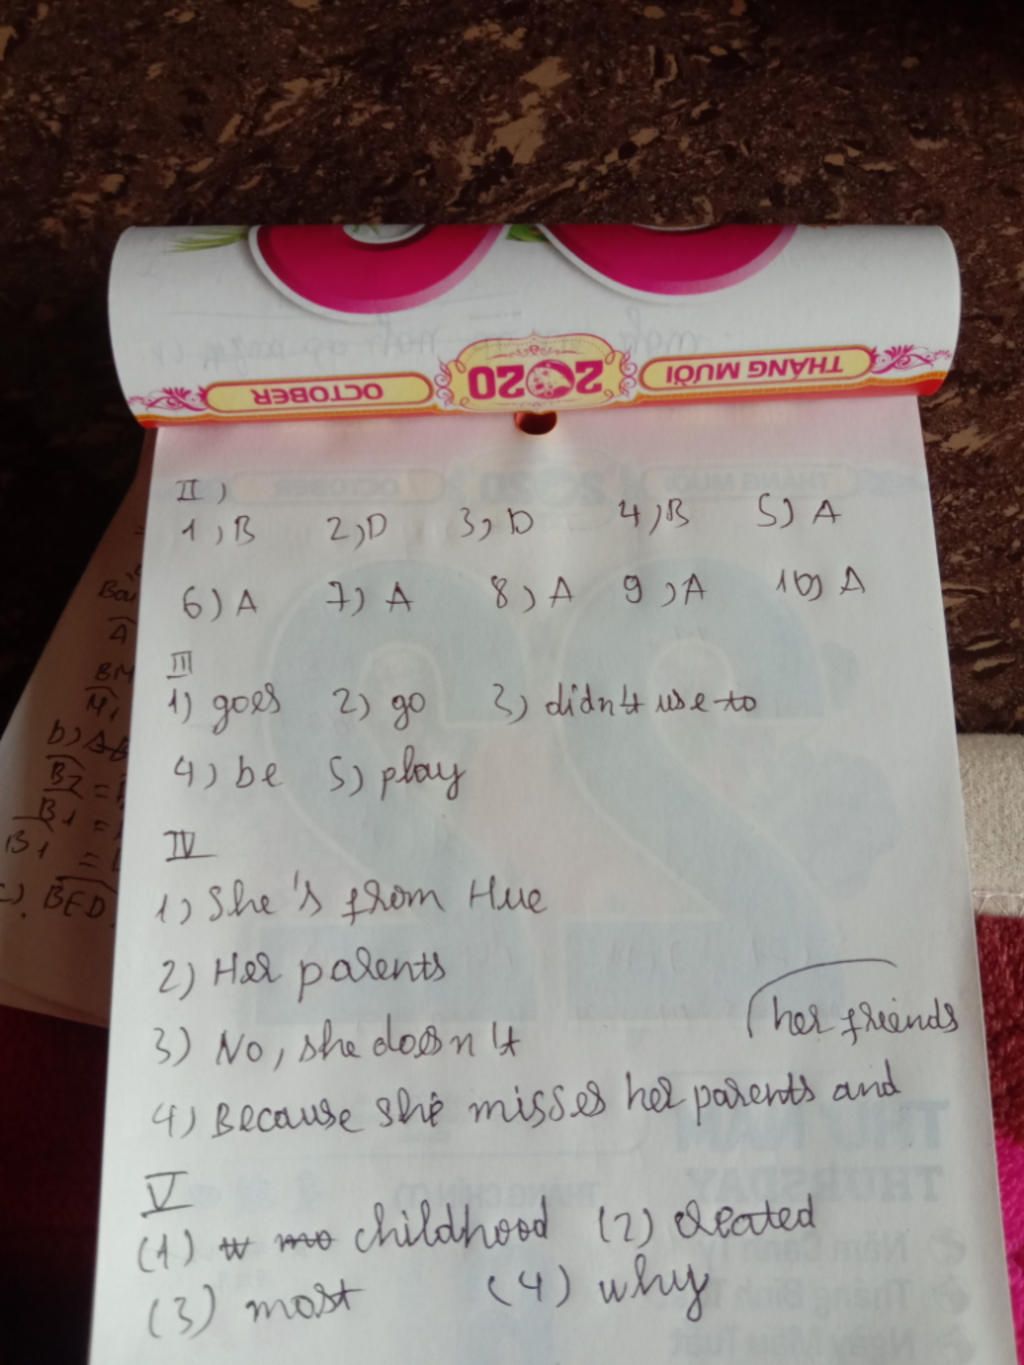 THÁNG MƯỜI 2020 OCTOBER
II)
1) B 2) D 3) D 4) B 5) A
6) A 7) A 8) A 9) A 10) A
III
1) goes 2) go 3) didn't use to
4) be 5) play
IV
1) She's from Hue
2) Her parents
3) No, she doesn't
her friends
4) Because she misses her parents and
V
(1) childhood (2) created
(3) most (4) why